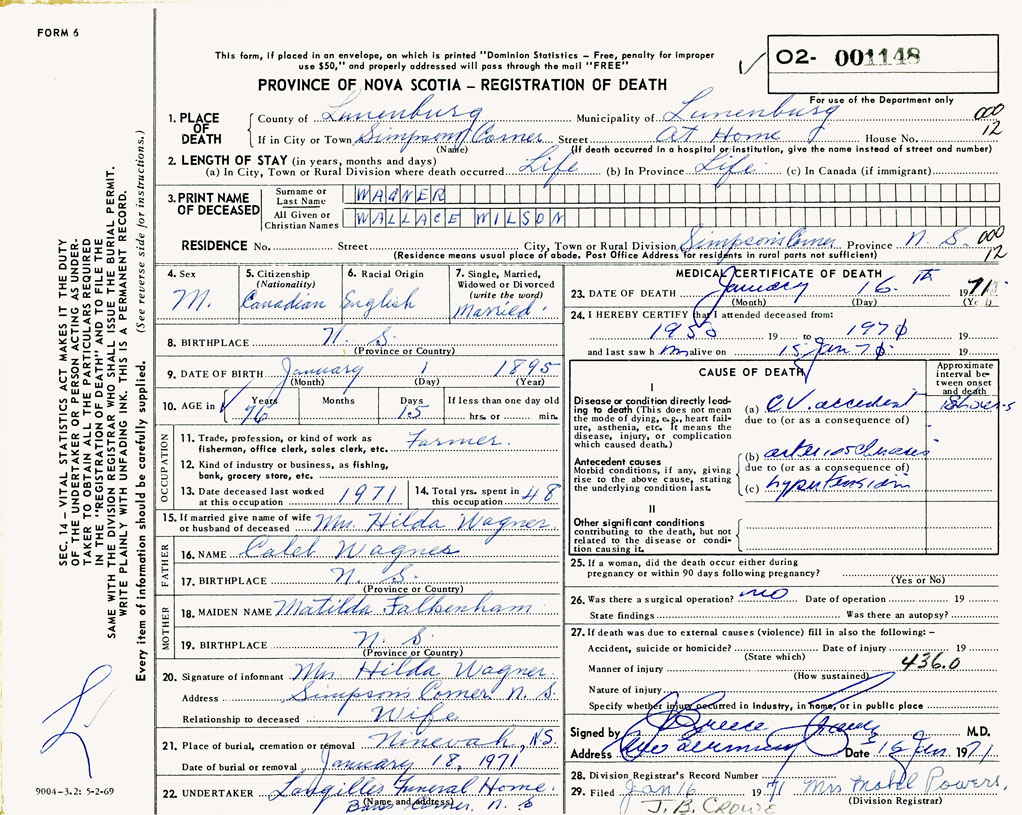 FORM 6
This form, if placed in an envelope, on which is printed "Dominion Statistics – Free, penalty for improper
use $50," and properly addressed will pass through the mail "FREE"
O2- 001148
For use of the Department only
PROVINCE OF NOVA SCOTIA – REGISTRATION OF DEATH
1. PLACE OF DEATH
County of Lunenburg Municipality of Lunenburg 000
If in City or Town Simpson Corner Street At Home House No. 12
(Name) (If death occurred in a hospital or institution, give the name instead of street and number)
2. LENGTH OF STAY (in years, months and days)
(a) In City, Town or Rural Division where death occurred Life (b) In Province Life (c) In Canada (if immigrant)
3. PRINT NAME OF DECEASED
Surname or Last Name WAGNER
All Given or Christian Names WALLACE WILSON
RESIDENCE No. Street City, Town or Rural Division Simpson's Corner Province N. S. 000
(Residence means usual place of abode. Post Office Address for residents in rural parts not sufficient) 12
4. Sex M.
5. Citizenship (Nationality) Canadian
6. Racial Origin English
7. Single, Married, Widowed or Divorced (write the word) Married
8. BIRTHPLACE N. S.
(Province or Country)
9. DATE OF BIRTH January 1 1895
(Month) (Day) (Year)
10. AGE in Years Months Days If less than one day old
76 15 hrs. or min.
OCCUPATION
11. Trade, profession, or kind of work as
fisherman, office clerk, sales clerk, etc. Farmer.
12. Kind of industry or business, as fishing,
bank, grocery store, etc.
13. Date deceased last worked
at this occupation 1971
14. Total yrs. spent in
this occupation 48
15. If married give name of wife
or husband of deceased Mrs. Hilda Wagner
FATHER
16. NAME Caleb Wagner
17. BIRTHPLACE N. S.
(Province or Country)
MOTHER
18. MAIDEN NAME Matilda Falkenham
19. BIRTHPLACE N. S.
(Province or Country)
20. Signature of informant Mrs Hilda Wagner
Address Simpson's Corner N. S.
Relationship to deceased Wife
21. Place of burial, cremation or removal Ninevah, NS.
Date of burial or removal January 18, 1971
22. UNDERTAKER Langilles Funeral Home
(Name and address)
Corner, N. S
MEDICAL CERTIFICATE OF DEATH
23. DATE OF DEATH January 16th 1971
(Month) (Day) (Year)
24. I HEREBY CERTIFY that I attended deceased from:
19 to 19
and last saw h m alive on 15 Jan 19
CAUSE OF DEATH
Approximate interval between onset and death
I
Disease or condition directly leading
to death (This does not mean
the mode of dying, e.g., heart failure,
asthenia, etc. It means the
disease, injury, or complication
which caused death.)
(a) C.V. accident
due to (or as a consequence of)
Antecedent causes
Morbid conditions, if any, giving
rise to the above cause, stating
the underlying condition last.
(b)
due to (or as a consequence of)
(c) hypertension
II
Other significant conditions
contributing to the death, but not
related to the disease or condition
causing it.
25. If a woman, did the death occur either during
pregnancy or within 90 days following pregnancy?
(Yes or No)
26. Was there a surgical operation? NO Date of operation 19
State findings Was there an autopsy?
27. If death was due to external causes (violence) fill in also the following: –
Accident, suicide or homicide? Date of injury 19
(State which)
Manner of injury 436.0
(How sustained)
Nature of injury
Specify whether injury occurred in Industry, in home, or in public place
Signed by M.D.
Address Date 16 Jan 1971
28. Division Registrar's Record Number
29. Filed Jan 16 1971 Mrs Mabel Powers,
(Division Registrar)
J. B. CROWE
SEC. 14 – VITAL STATISTICS ACT MAKES IT THE DUTY
OF THE UNDERTAKER OR PERSON ACTING AS UNDERTAKER
TO OBTAIN ALL THE PARTICULARS REQUIRED
IN THE "REGISTRATION OF DEATH" AND TO FILE THE
SAME WITH THE DIVISION REGISTRAR WHO SHALL ISSUE THE BURIAL PERMIT.
WRITE PLAINLY WITH UNFADING INK. THIS IS A PERMANENT RECORD.
Every item of information should be carefully supplied. (See reverse side for instructions.)
9004-3.2: 5-2-69